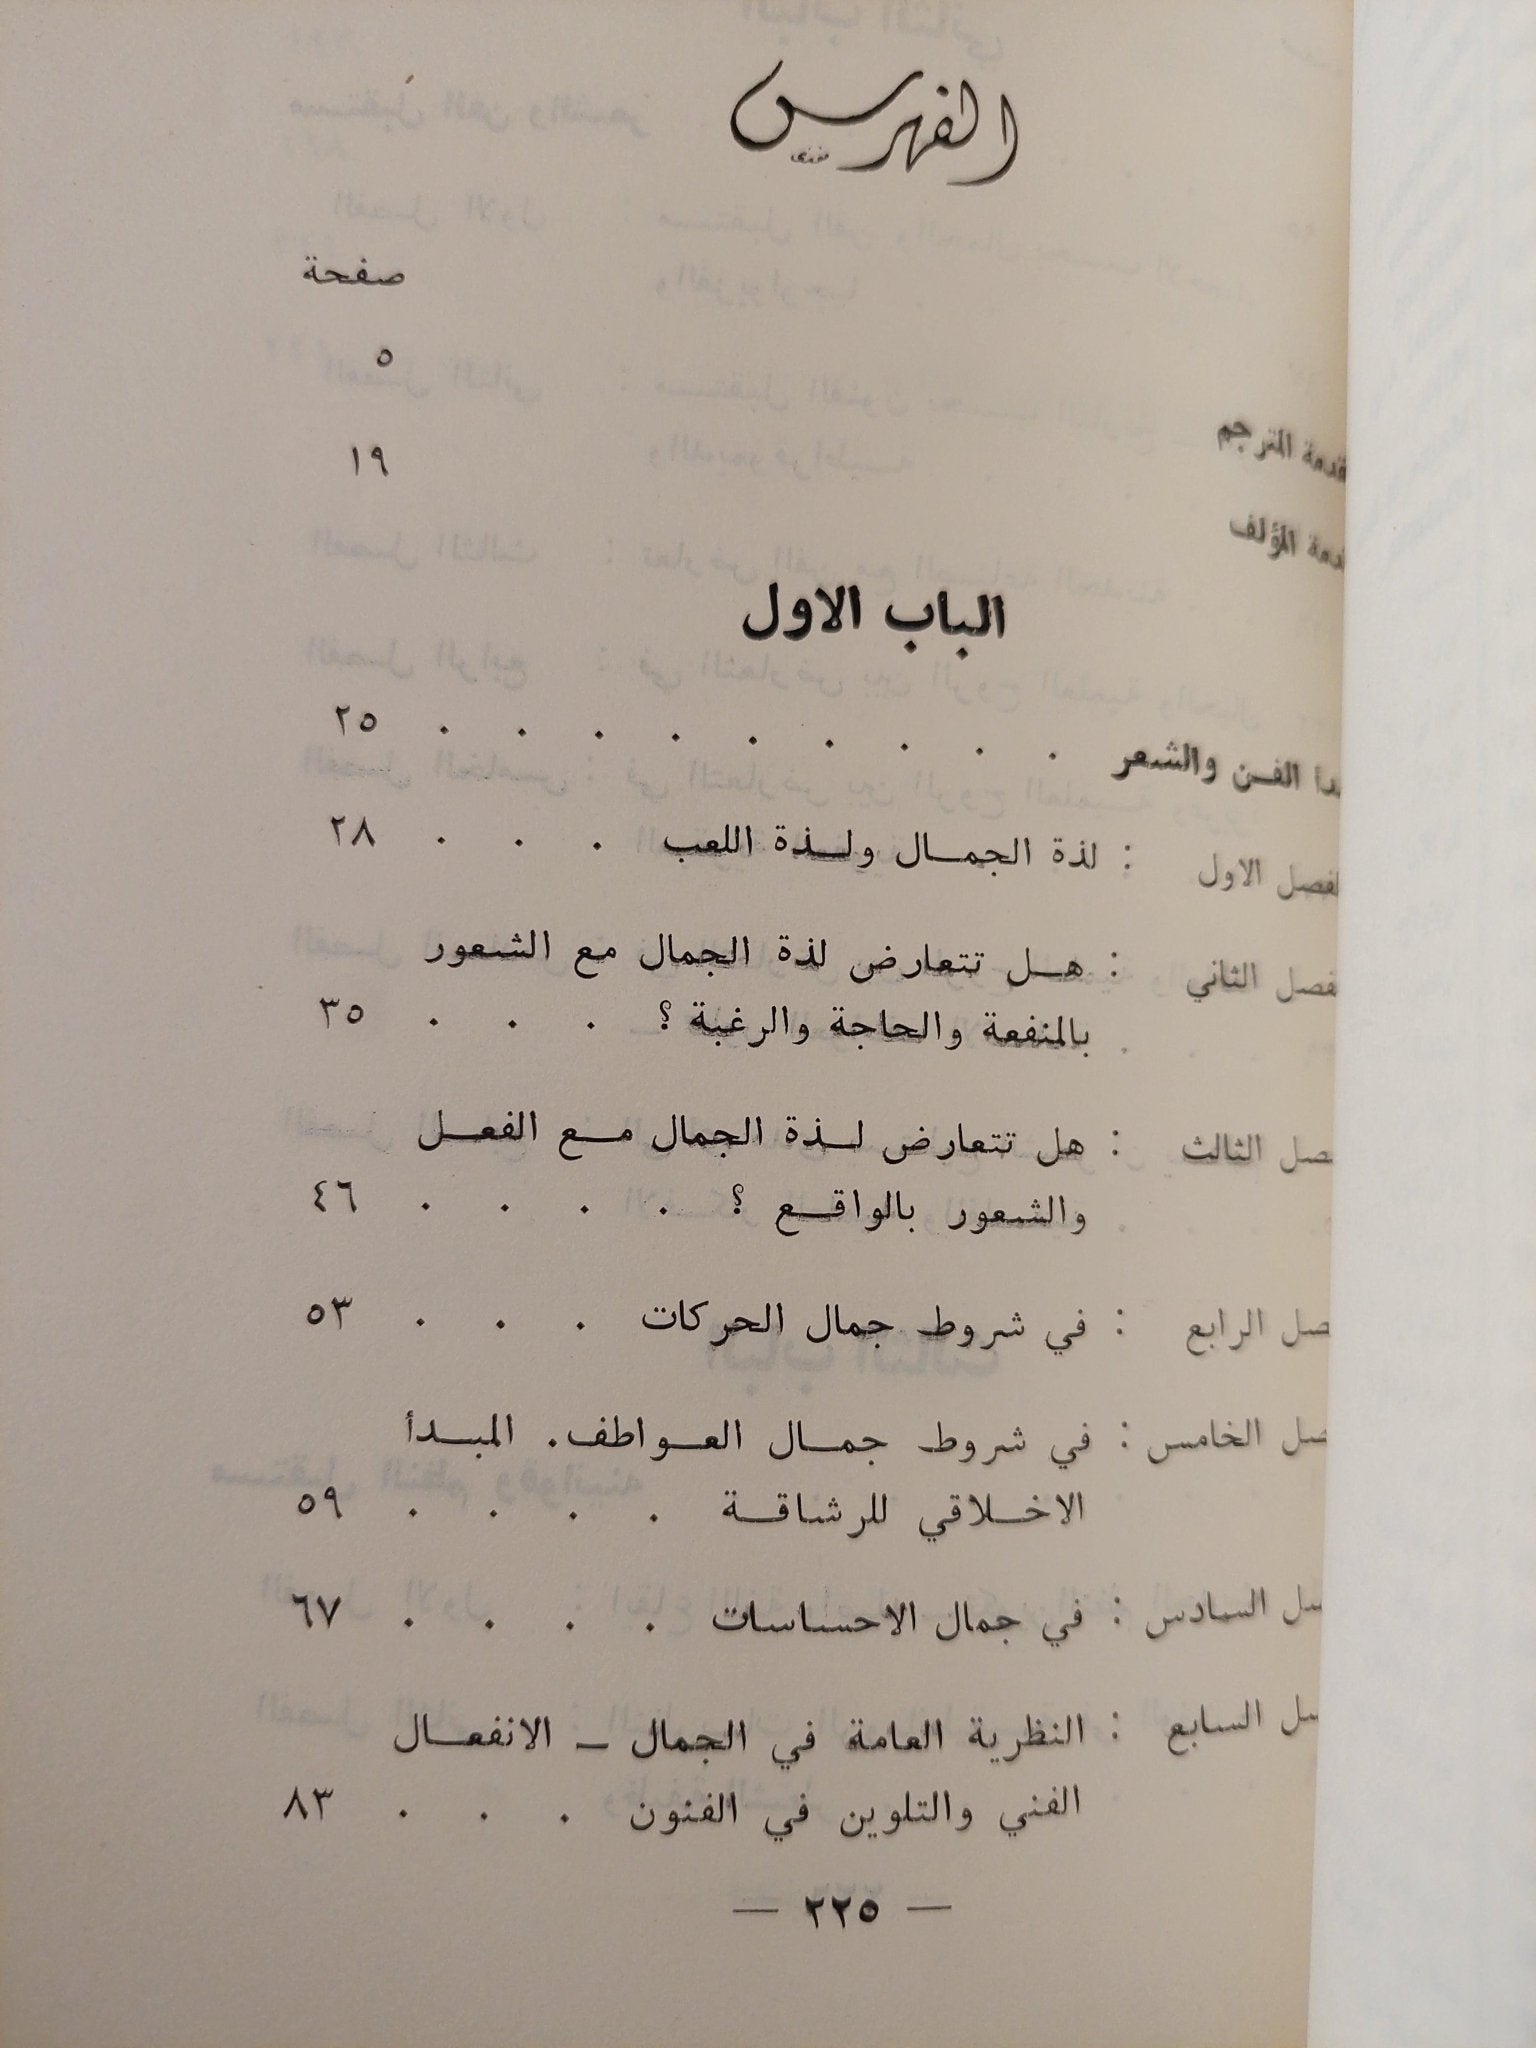 الفهرس
صفحة
٥
المترجم
١٩
المؤلف
الباب الاول
الفن والشعر . . . . . . . . . ٢٥
الاول : لذة الجمال ولذة اللعب . . . ٢٨
الثاني : هل تتعارض لذة الجمال مع الشعور
بالمنفعة والحاجة والرغبة ؟ . . . ٣٥
الثالث : هل تتعارض لذة الجمال مع الفعل
والشعور بالواقع ؟ . . . . ٤٦
الرابع : في شروط جمال الحركات . . . ٥٣
الخامس : في شروط جمال العواطف . المبدأ
الاخلاقي للرشاقة . . . . ٥٩
السادس : في جمال الاحساسات . . . . ٦٧
السابع : النظرية العامة في الجمال – الانفعال
الفني والتلوين في الفنون . . . ٨٣
— ٢٢٥ —